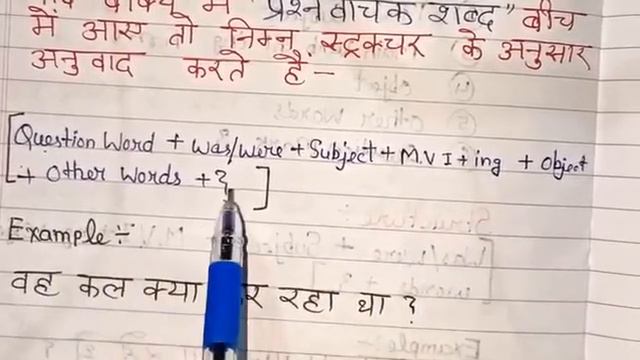 वाक्य में "प्रश्नवाचक शब्द" बीच
में आए तो निम्न स्ट्रक्चर के अनुसार
अनुवाद करते हैं-
[Question Word + was/were + Subject + M.V I + ing + Object
+ Other Words + ?]
Example ÷
वह कल क्या रहा था ?